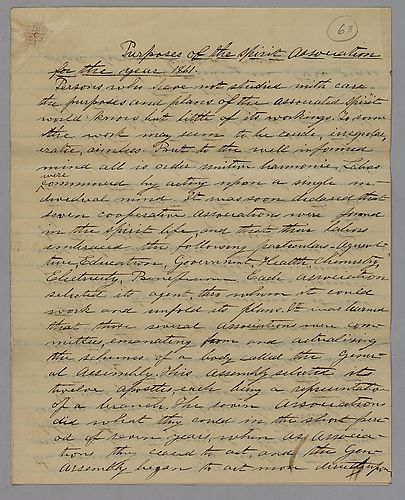 63
Purposes of the Spirit Association
for the year 1861.
Persons who have not studied with care
the purposes and plans of the Associated Spirit
world know but little of its workings. To some
the work may seem to be crude, irregular,
eratic, aimless. But to the well informed
mind all is order unitive harmonic. Labors
were
commenced by acting upon a single in-
dividual mind. It was soon declared that
seven cooperative associations were formed
in the Spirit life, and that their labors
embraced the following particulars-
tive, Education, Government, Health, Chemistry,
Electricity, Beneficence. Each association
selected its agent, thro whom it could
work and unfold its plans. It was learned
that these several associations were com-
mittees, emanating from and actualizing
the schemes of a body called the Gener-
al Assembly. This Assembly selected its
twelve apostles, each being a representative
of a branch. The seven associations
did what they could in the short peri-
od of seven years, when as associa-
tions, they ceased to act, and the Gen
Assembly began to act more directly upon